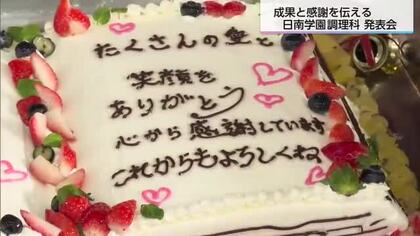 成果と感謝を伝える
日南学園調理科 発表会
たくさんの愛と
笑顔を
ありがとう
心から感謝しています
これからもよろしくね